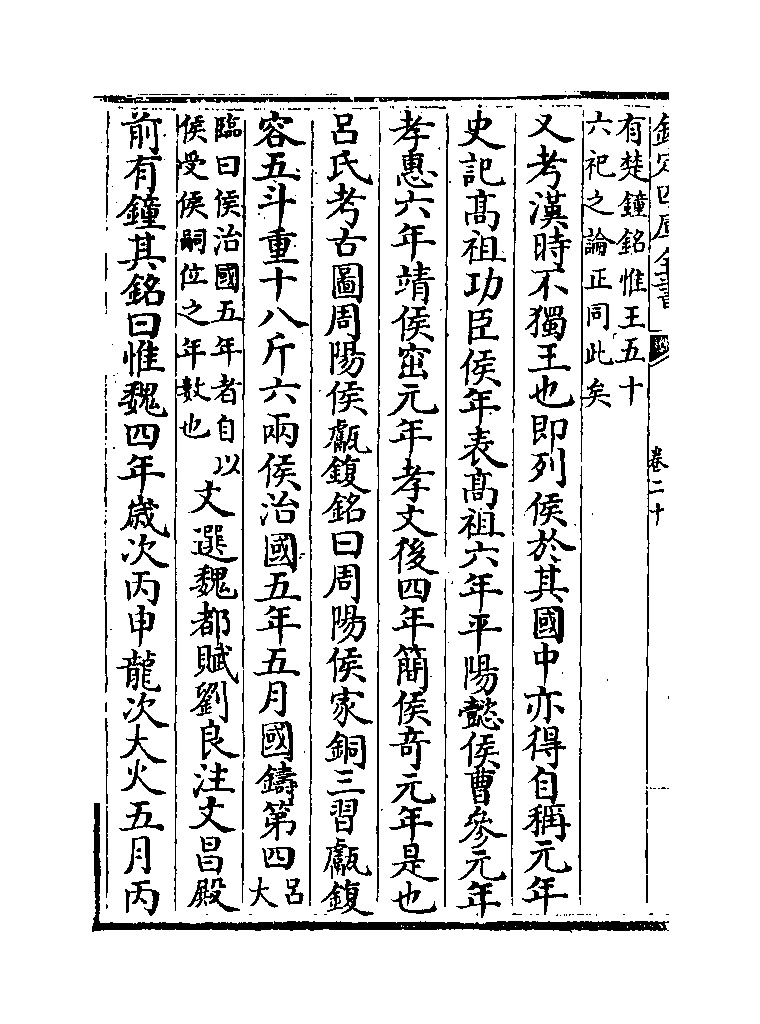 欽定四庫全書
卷二十
有楚鐘銘惟王五十
六祀之論正同此矣
又考漢時不獨王也即列侯於其國中亦得自稱元年
史記髙祖功臣侯年表髙祖六年平陽懿侯曹參元年
孝惠六年靖侯窋元年孝文後四年簡侯竒元年是也
呂氏考古圖周陽侯甗鍑銘曰周陽侯家銅三習甗鍑
容五斗重十八斤六兩侯治國五年五月國鑄第四呂大
臨曰侯治國五年者自以
侯受侯嗣位之年數也
文選魏都賦劉良注文昌殿
前有鐘其銘曰惟魏四年歲次丙申龍次大火五月丙